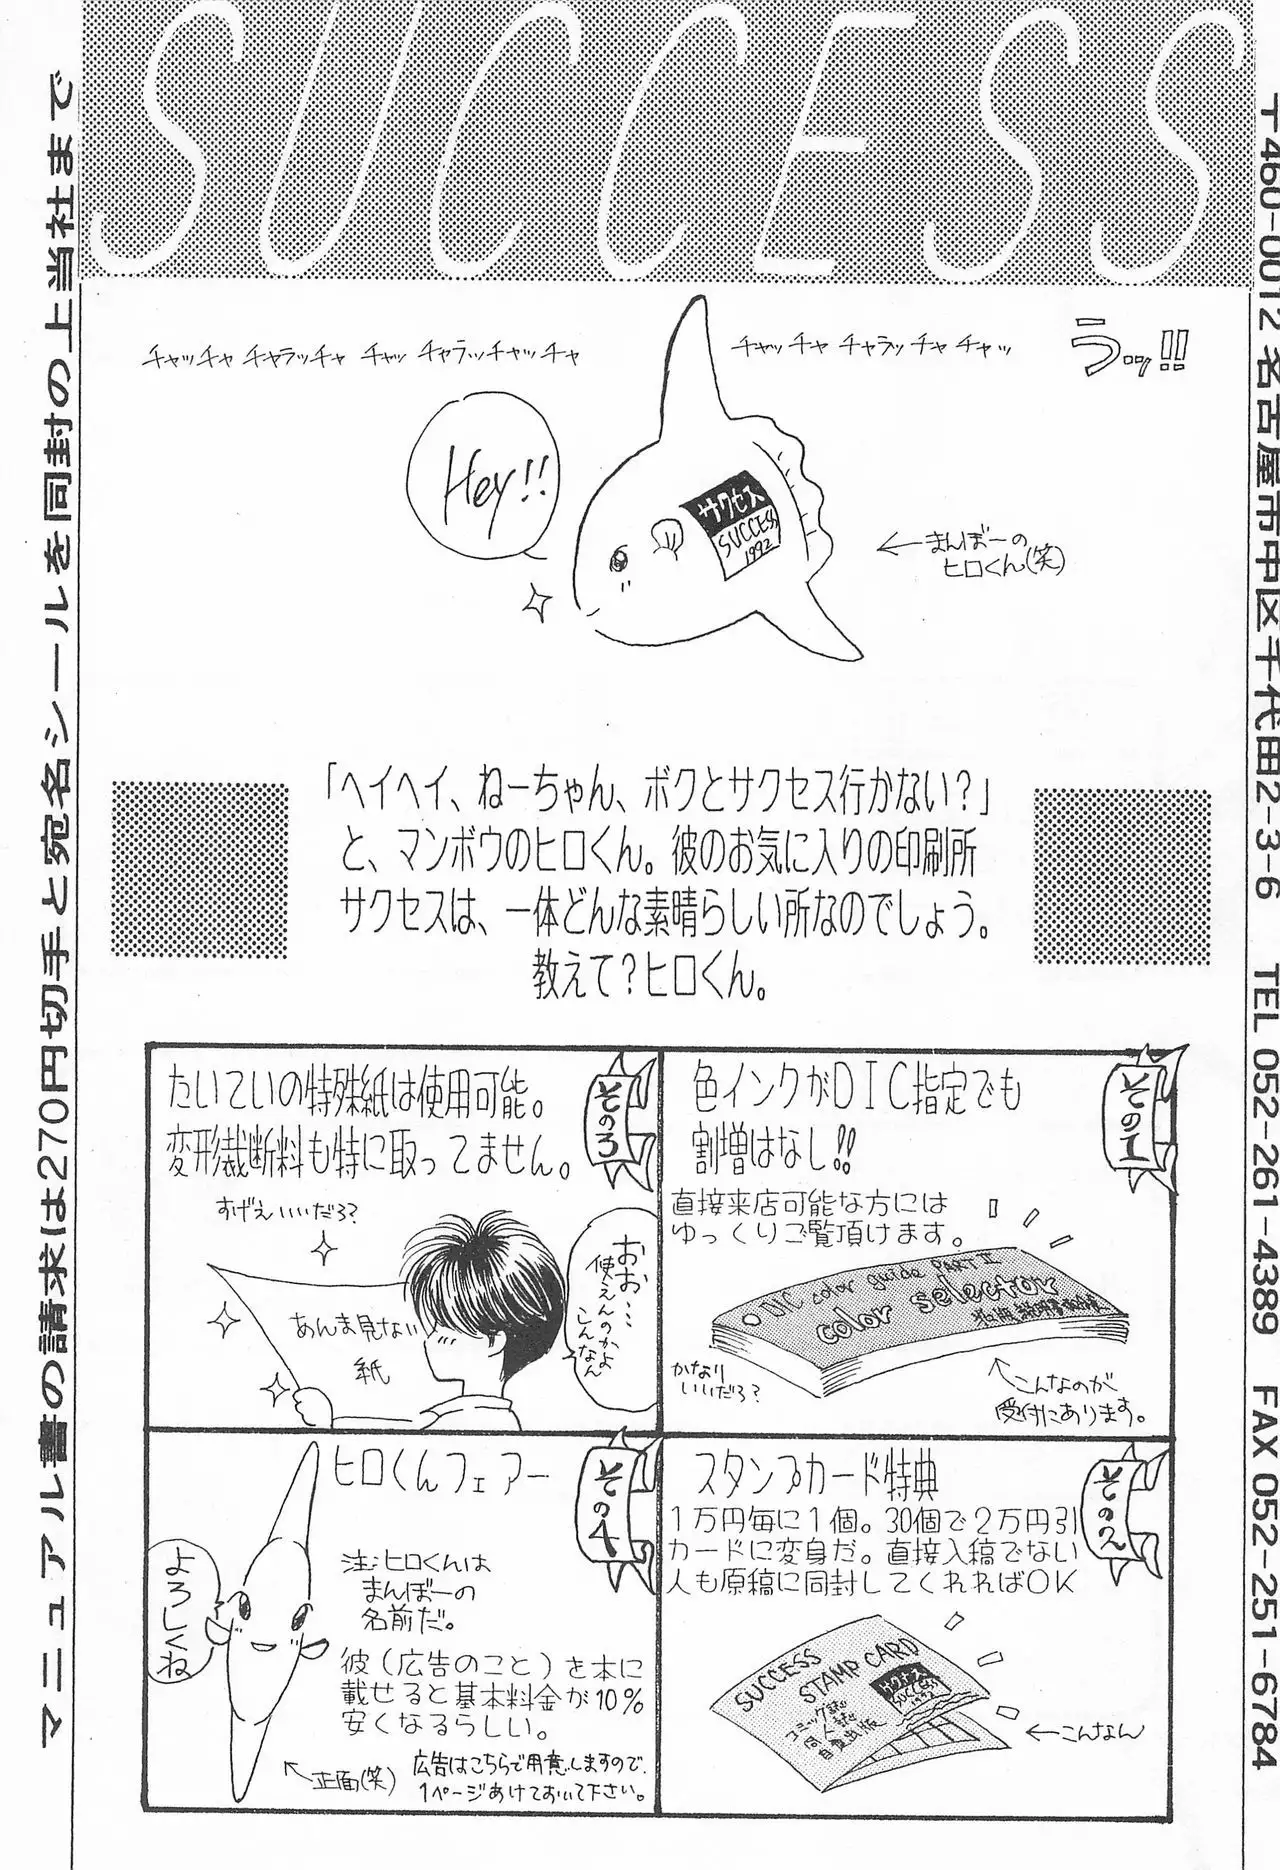 SUCCESS
うッ!!
チャッチャ チャラッチャ チャッ
チャッチャ チャラッチャ チャッ チャラッチャッチャ
Hey!!
サクセス
SUCCESS
1992
←まんぼーの
ヒロくん(笑)
「ヘイヘイ、ねーちゃん、ボクとサクセス行かない?」
と、マンボウのヒロくん。彼のお気に入りの印刷所
サクセスは、一体どんな素晴らしい所なのでしょう。
教えて?ヒロくん。
その1
色インクがDIC指定でも
割増はなし!!
直接来店可能な方には
ゆっくりご覧頂けます。
DIC color guide PART II
color selector
かなり
いいだろ?
こんなのが
受付にあります。
その2
スタンプカード特典
1万円毎に1個。30個で2万円引
カードに変身だ。直接入稿でない
人も原稿に同封してくれればOK
SUCCESS
STAMP CARD
コミック誌
同人誌
自費出版
サクセス
SUCCESS
1992
←こんなん
その3
たいていの特殊紙は使用可能。
変形裁断料も特に取ってません。
すげえいいだろ?
おお…
使えんのかよ
こんなん
あんま見ない
紙
その4
ヒロくんフェアー
注:ヒロくんは
まんぼーの
名前だ。
よろしくね
彼(広告のこと)を本に
載せると基本料金が10%
安くなるらしい。
正面(笑)
広告はこちらで用意しますので、
1ページあけておいて下さい。
〒460-0012名古屋市中区千代田2-3-6 TEL 052-261-4389 FAX 052-251-6784
マニュアル書の請求は270円切手と宛名シールを同封の上当社まで